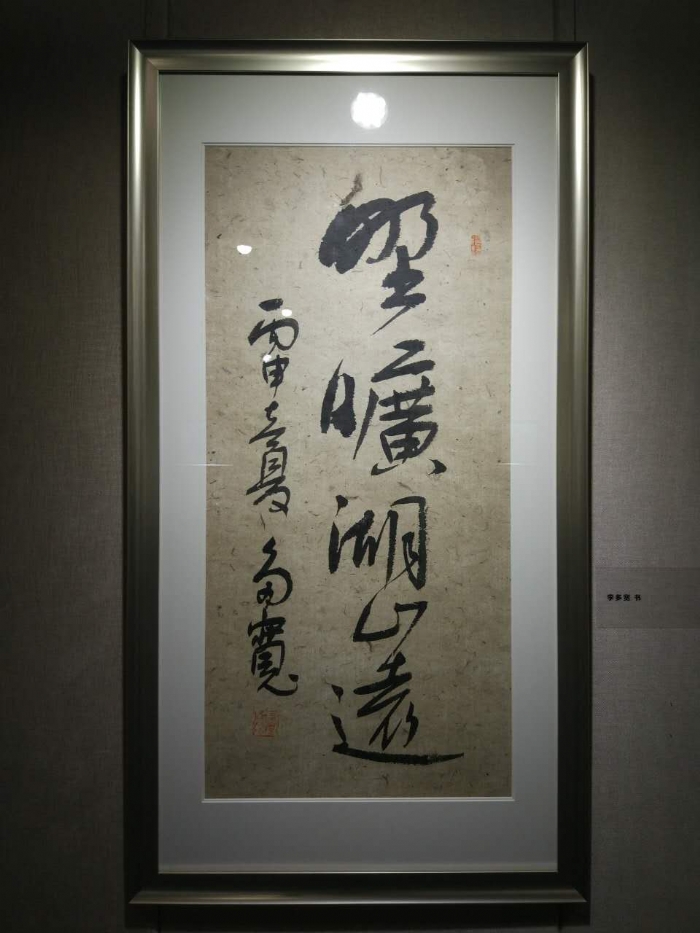 野曠湖山遠
丙申立夏多寬
李多宽 书